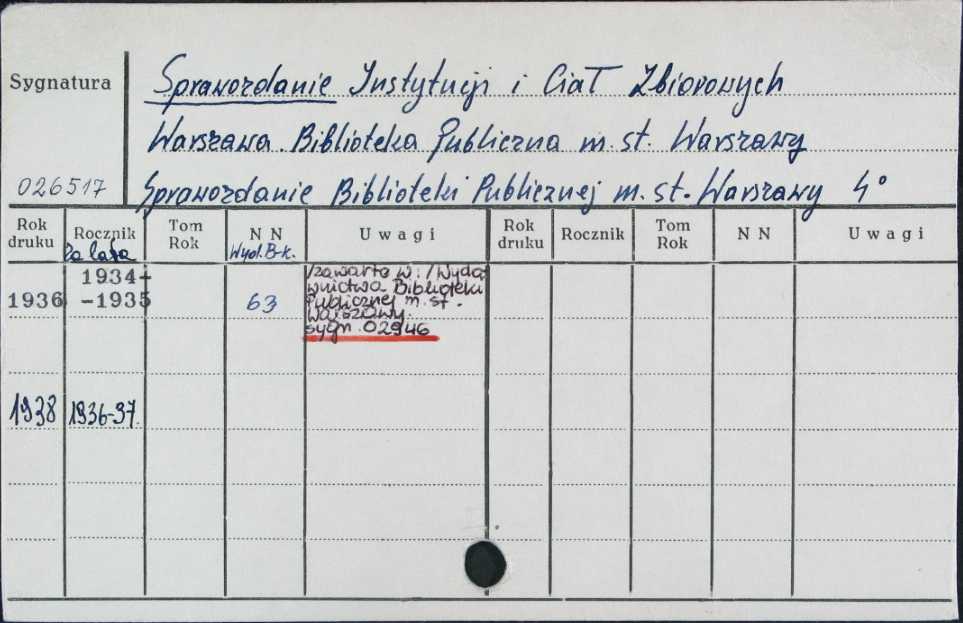 Sygnatura
Sprawozdanie Instytucji i Ciał Zbiorowych
Warszawa. Biblioteka Publiczna m. st. Warszawy
026517
Sprawozdanie Biblioteki Publicznej m. st. Warszawy 4°
Rok druku Rocznik za lata Tom Rok NN Wyd. B-k. Uwagi Rok druku Rocznik Tom Rok NN Uwagi
1936 1934-
-1935 63
/zawarte w: /Wyda
wnictwa Biblioteki
Publicznej m. st.
Warszawy.
sygn. 02946
1938 1936-37.